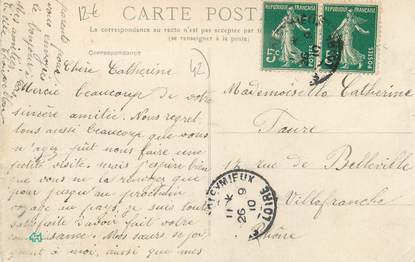 12€
CARTE POSTALE
La correspondance au recto n'est pas acceptée par
(se renseigner à la poste)
CORRESPONDANCE
RÉPUBLIQUE FRANÇAISE
RÉPUBLIQUE FRANÇAISE
5c
POSTES
42
Chère Catherine
Mercie beaucoup de votre
sincère amitié. Nous regret
tons aussi beaucoup que vous
n'ayez puit nous faire une
petite visite, mais j'espère bien
que vous ne la
pour jusqu'au prochain
voyage au pays, je suis toute
satisfaite d'avoir fait votre
connaissance. Mes sœurs se joi
gnent à moi, ainsi que mes
parents pour
vous envoyer
Mademoiselle Catherine
Faure
12 rue de Belleville
Villefranche
Rhône
11 9
26 10
LOIRE